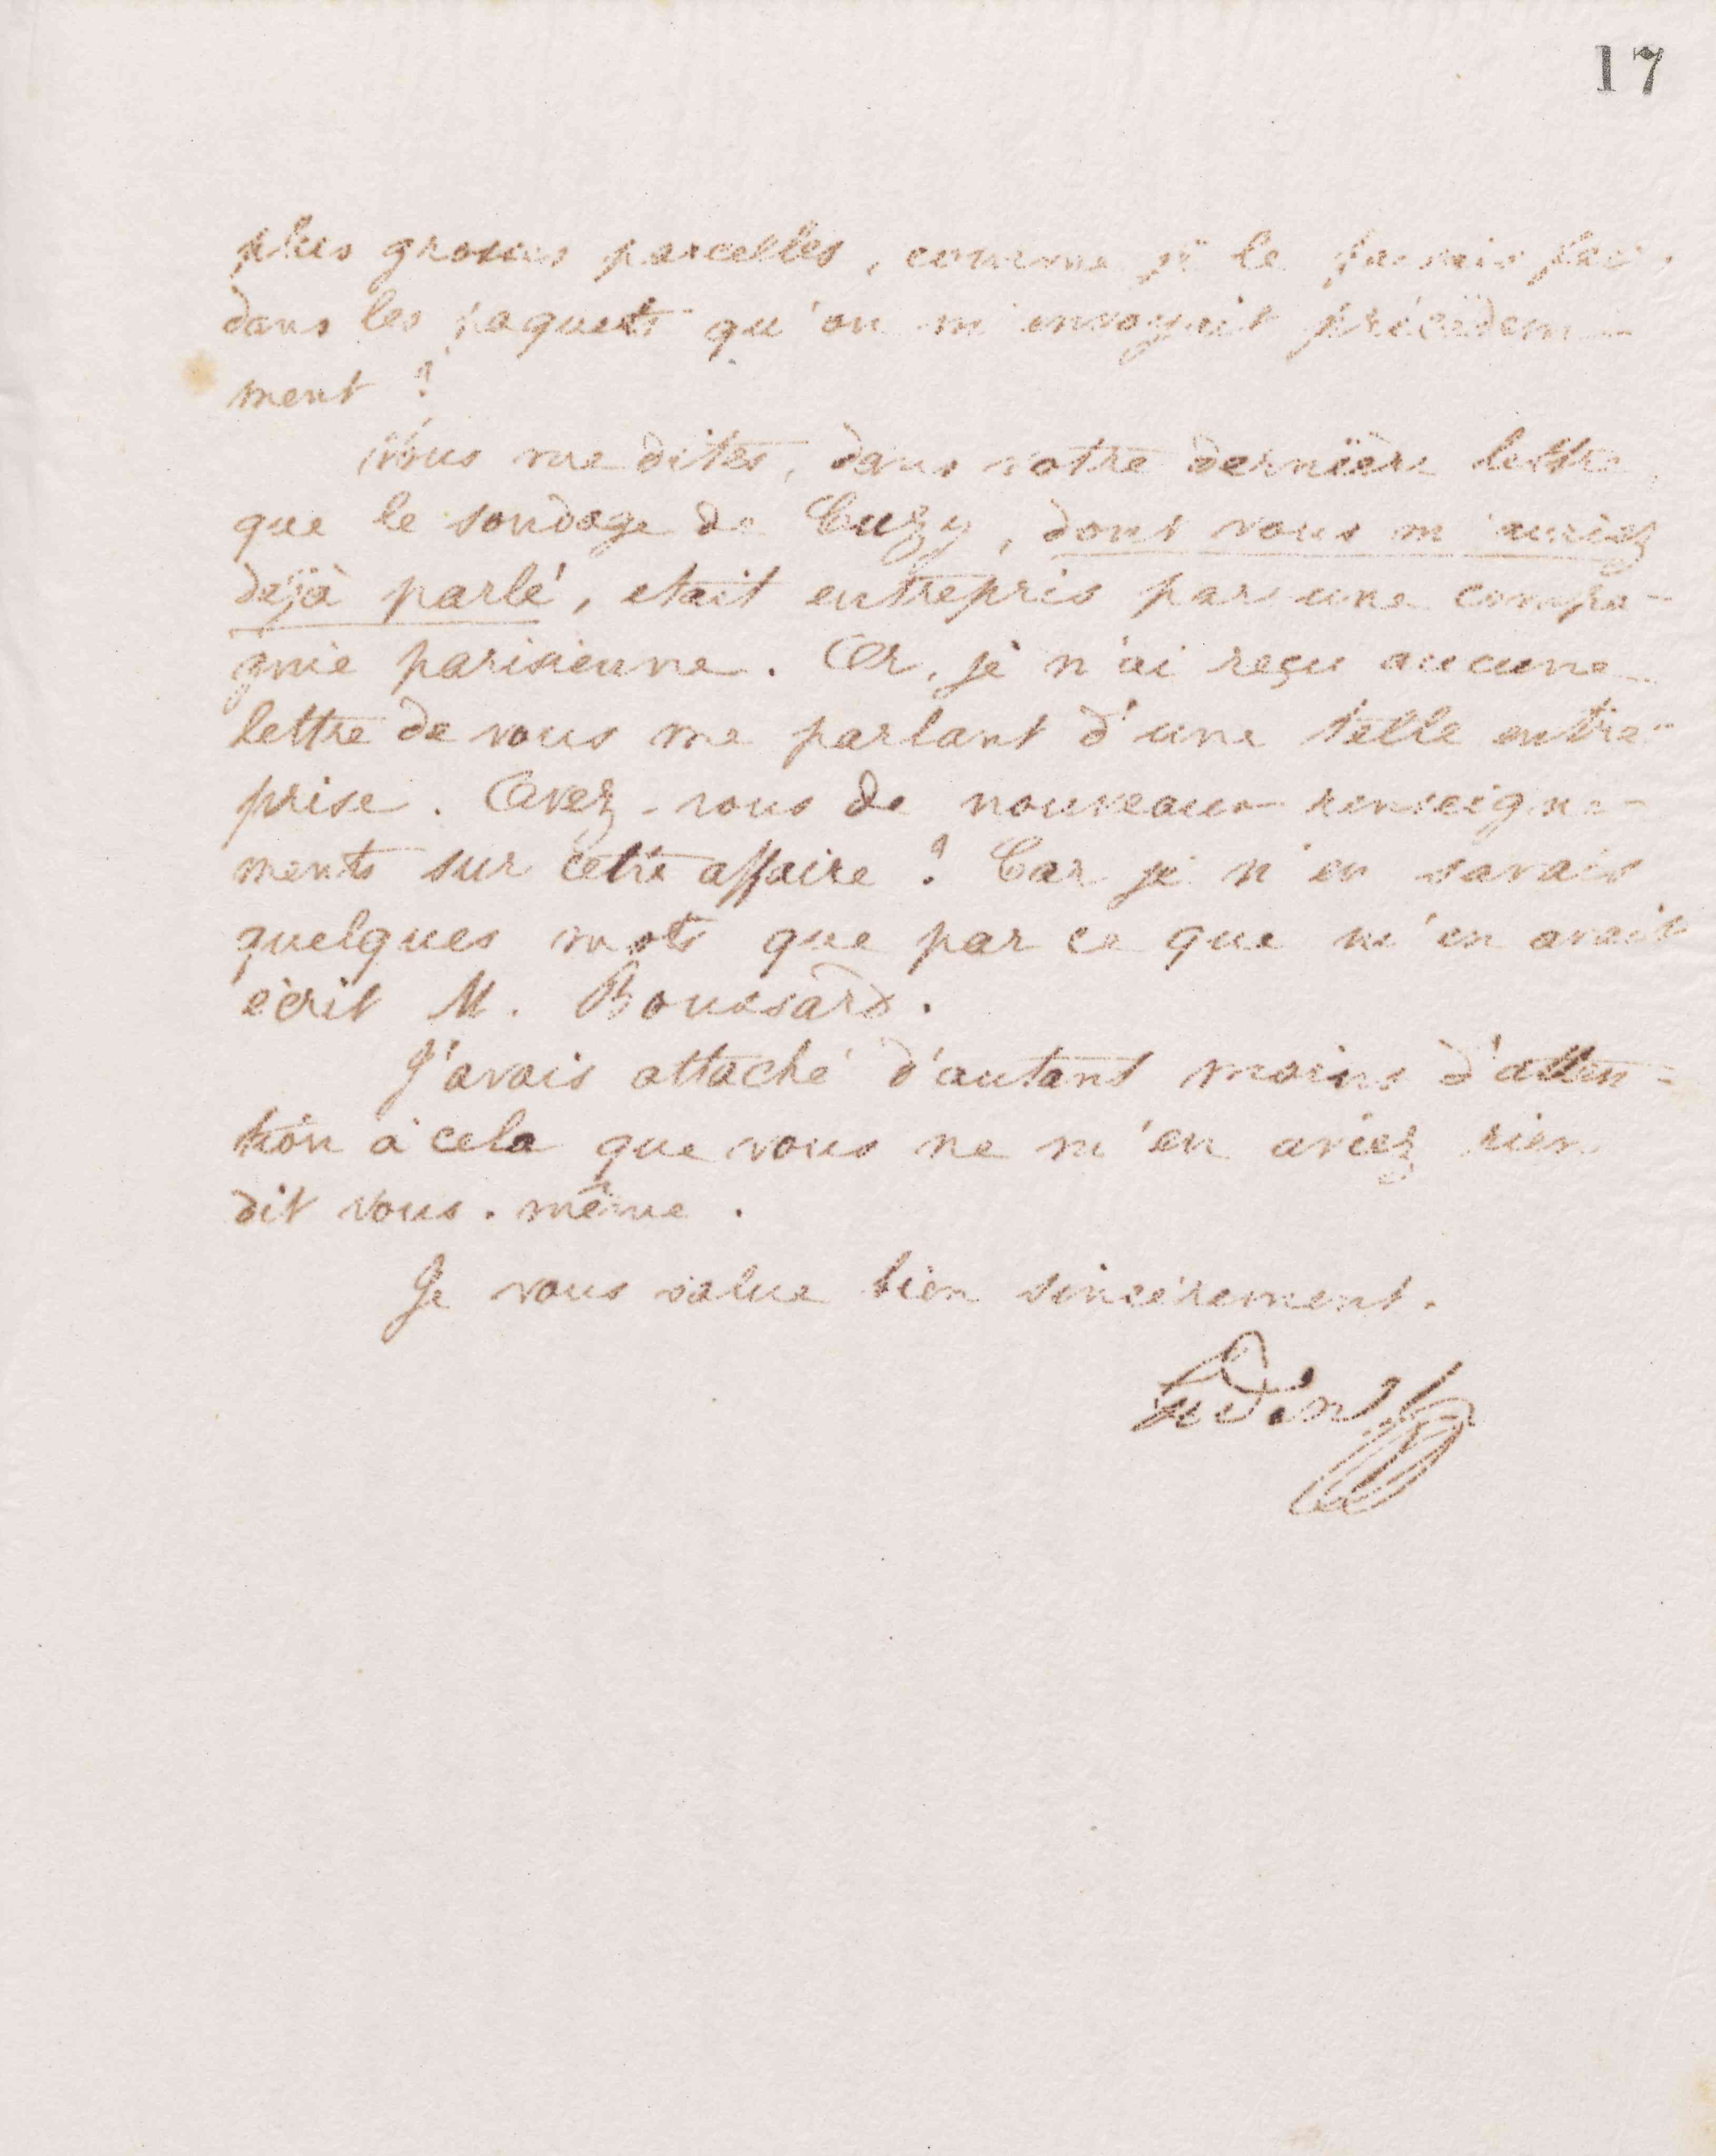 17
plus grosses parcelles, comme je le faisais
dans les paquets qu'on m'envoyait précédem-
ment ?
Vous me dites, dans votre dernière lettre
que le sondage de Cuzy, dont vous m'auriez
déjà parlé, était entrepris par une compa-
gnie parisienne. Or, je n'ai reçu aucune
lettre de vous me parlant d'une telle entre-
prise. Avez-vous de nouveaux renseigne-
ments sur cette affaire ? Car je n'en savais
quelques mots que par ce que m'en avait
écrit M. Boussard.
J'avais attaché d'autant moins d'atten-
tion à cela que vous ne m'en aviez rien
dit vous-même.
Je vous salue bien sincèrement.